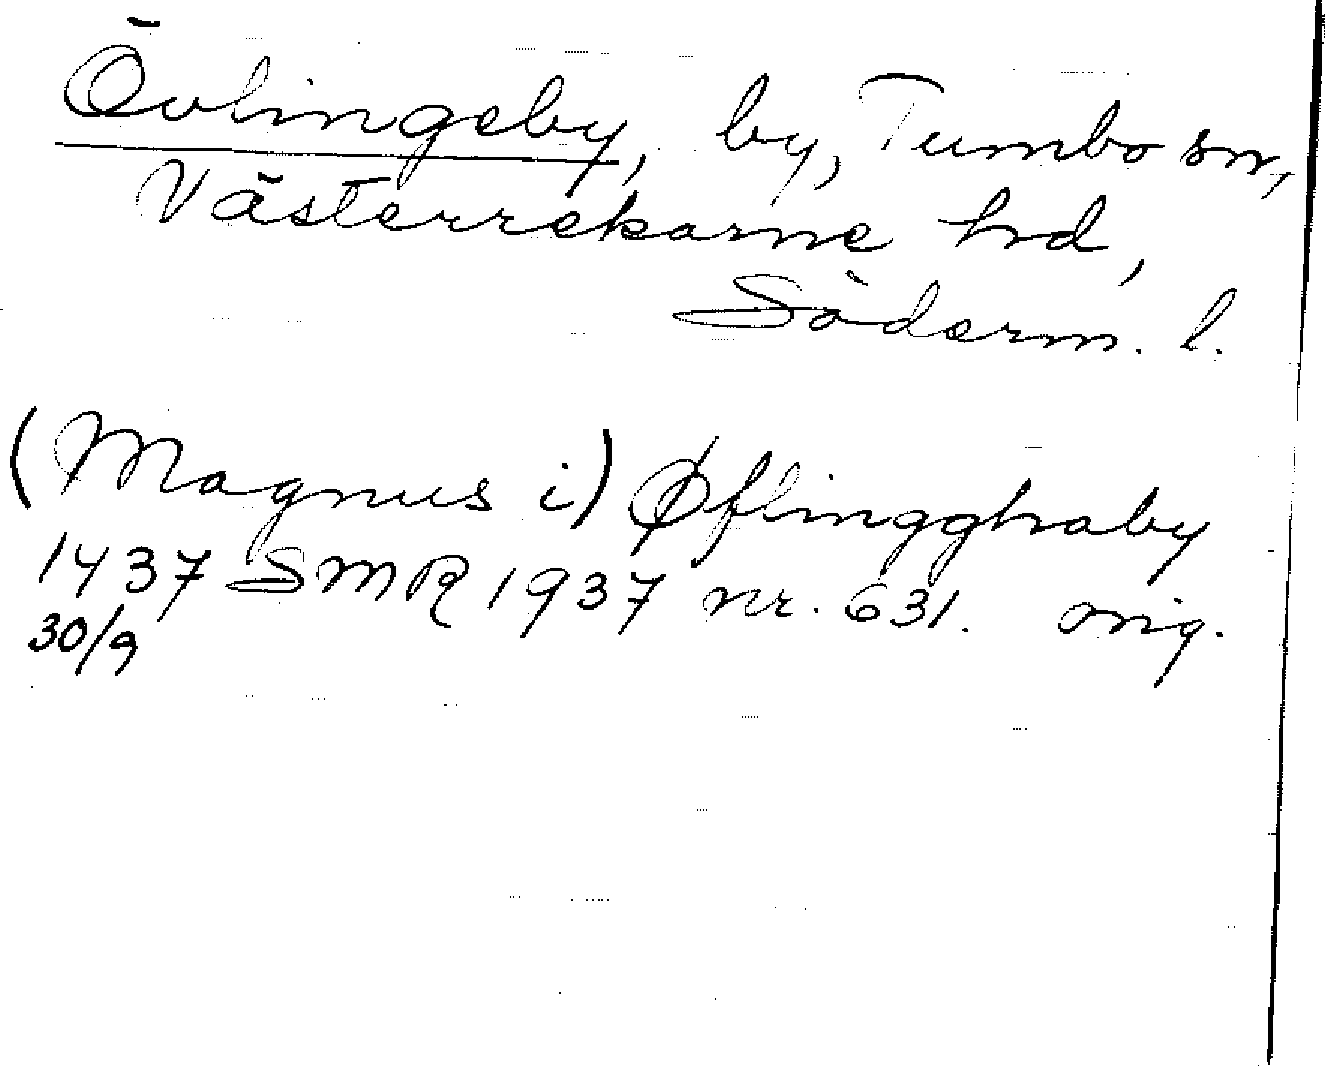 Övlingeby, by, Tumbo sn,
Västerrekarne hd,
Söderm. l.
(Magnus i) Øflingghaby
1437 SMR 1937 nr. 631. orig.
30/9